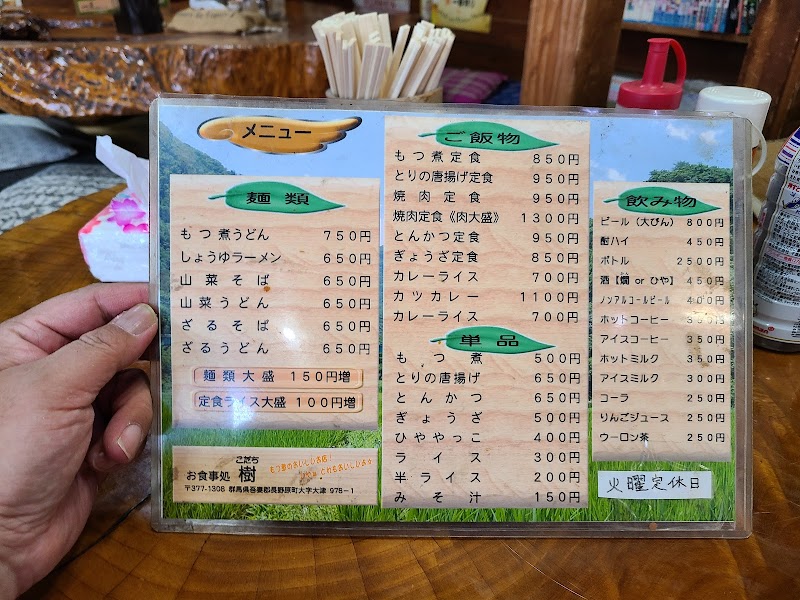 メニュー
麺類
もつ煮うどん 750円
しょうゆラーメン 650円
山菜そば 650円
山菜うどん 650円
ざるそば 650円
ざるうどん 650円
麺類大盛 150円増
定食ライス大盛 100円増
こだち
お食事処 樹
〒377-1308 群馬県吾妻郡長野原町大字大津 978-1
ご飯物
もつ煮定食 850円
とりの唐揚げ定食 950円
焼肉定食 950円
焼肉定食《肉大盛》 1300円
とんかつ定食 950円
ぎょうざ定食 850円
カレーライス 700円
カツカレー 1100円
カレーライス 700円
単品
もつ煮 500円
とりの唐揚げ 650円
とんかつ 650円
ぎょうざ 500円
ひややっこ 400円
ライス 300円
半ライス 200円
みそ汁 150円
飲み物
ビール（大びん） 800円
酎ハイ 450円
ボトル 2500円
酒【燗 or ひや】 450円
ノンアルコールビール 400円
ホットコーヒー 350円
アイスコーヒー 350円
ホットミルク 350円
アイスミルク 300円
コーラ 250円
りんごジュース 250円
ウーロン茶 250円
火曜定休日